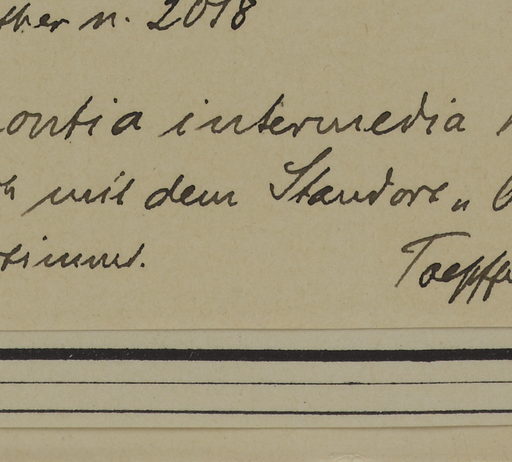 ther n. 2018
ontia intermedia
h mit dem Standort „
timmt.
Toepffe